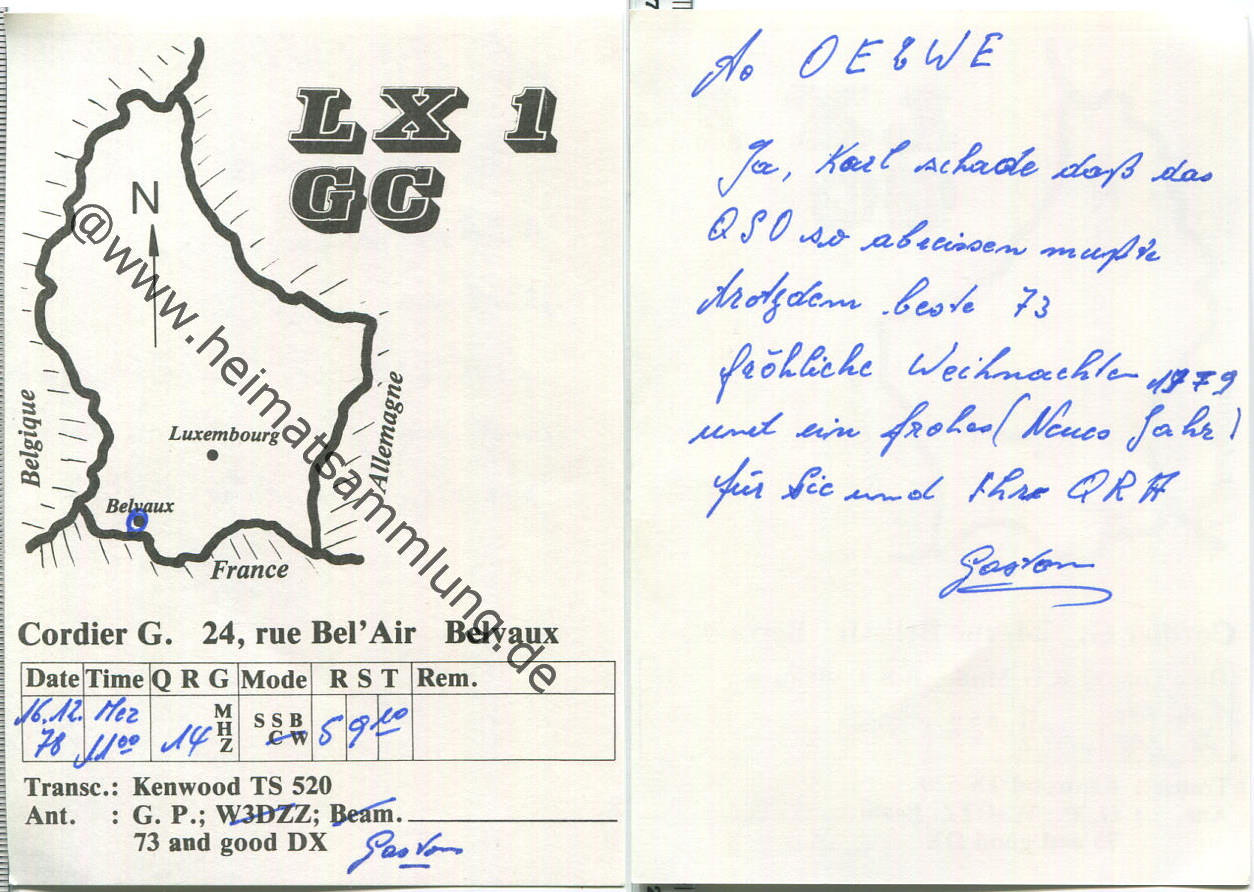 LX 1
GC
N
@www.heimatsammlung.de
Belgique
Luxembourg
Allemagne
Belvaux
France
Cordier G. 24, rue Bel'Air Belvaux
Date Time Q R G Mode R S T Rem.
16.12. Mez MHZ S S B
78 11 00 14 C W 5 9 10
Transc.: Kenwood TS 520
Ant. : G. P.; W3DZZ; Beam.
73 and good DX Gaston
To OE8WE
Ja, Karl schade daß das
QSO so abreissen mußte
trotzdem beste 73
fröhliche Weihnachten 1979
und ein frohes (Neues Jahr)
für Sie und Ihre QRA
Gaston